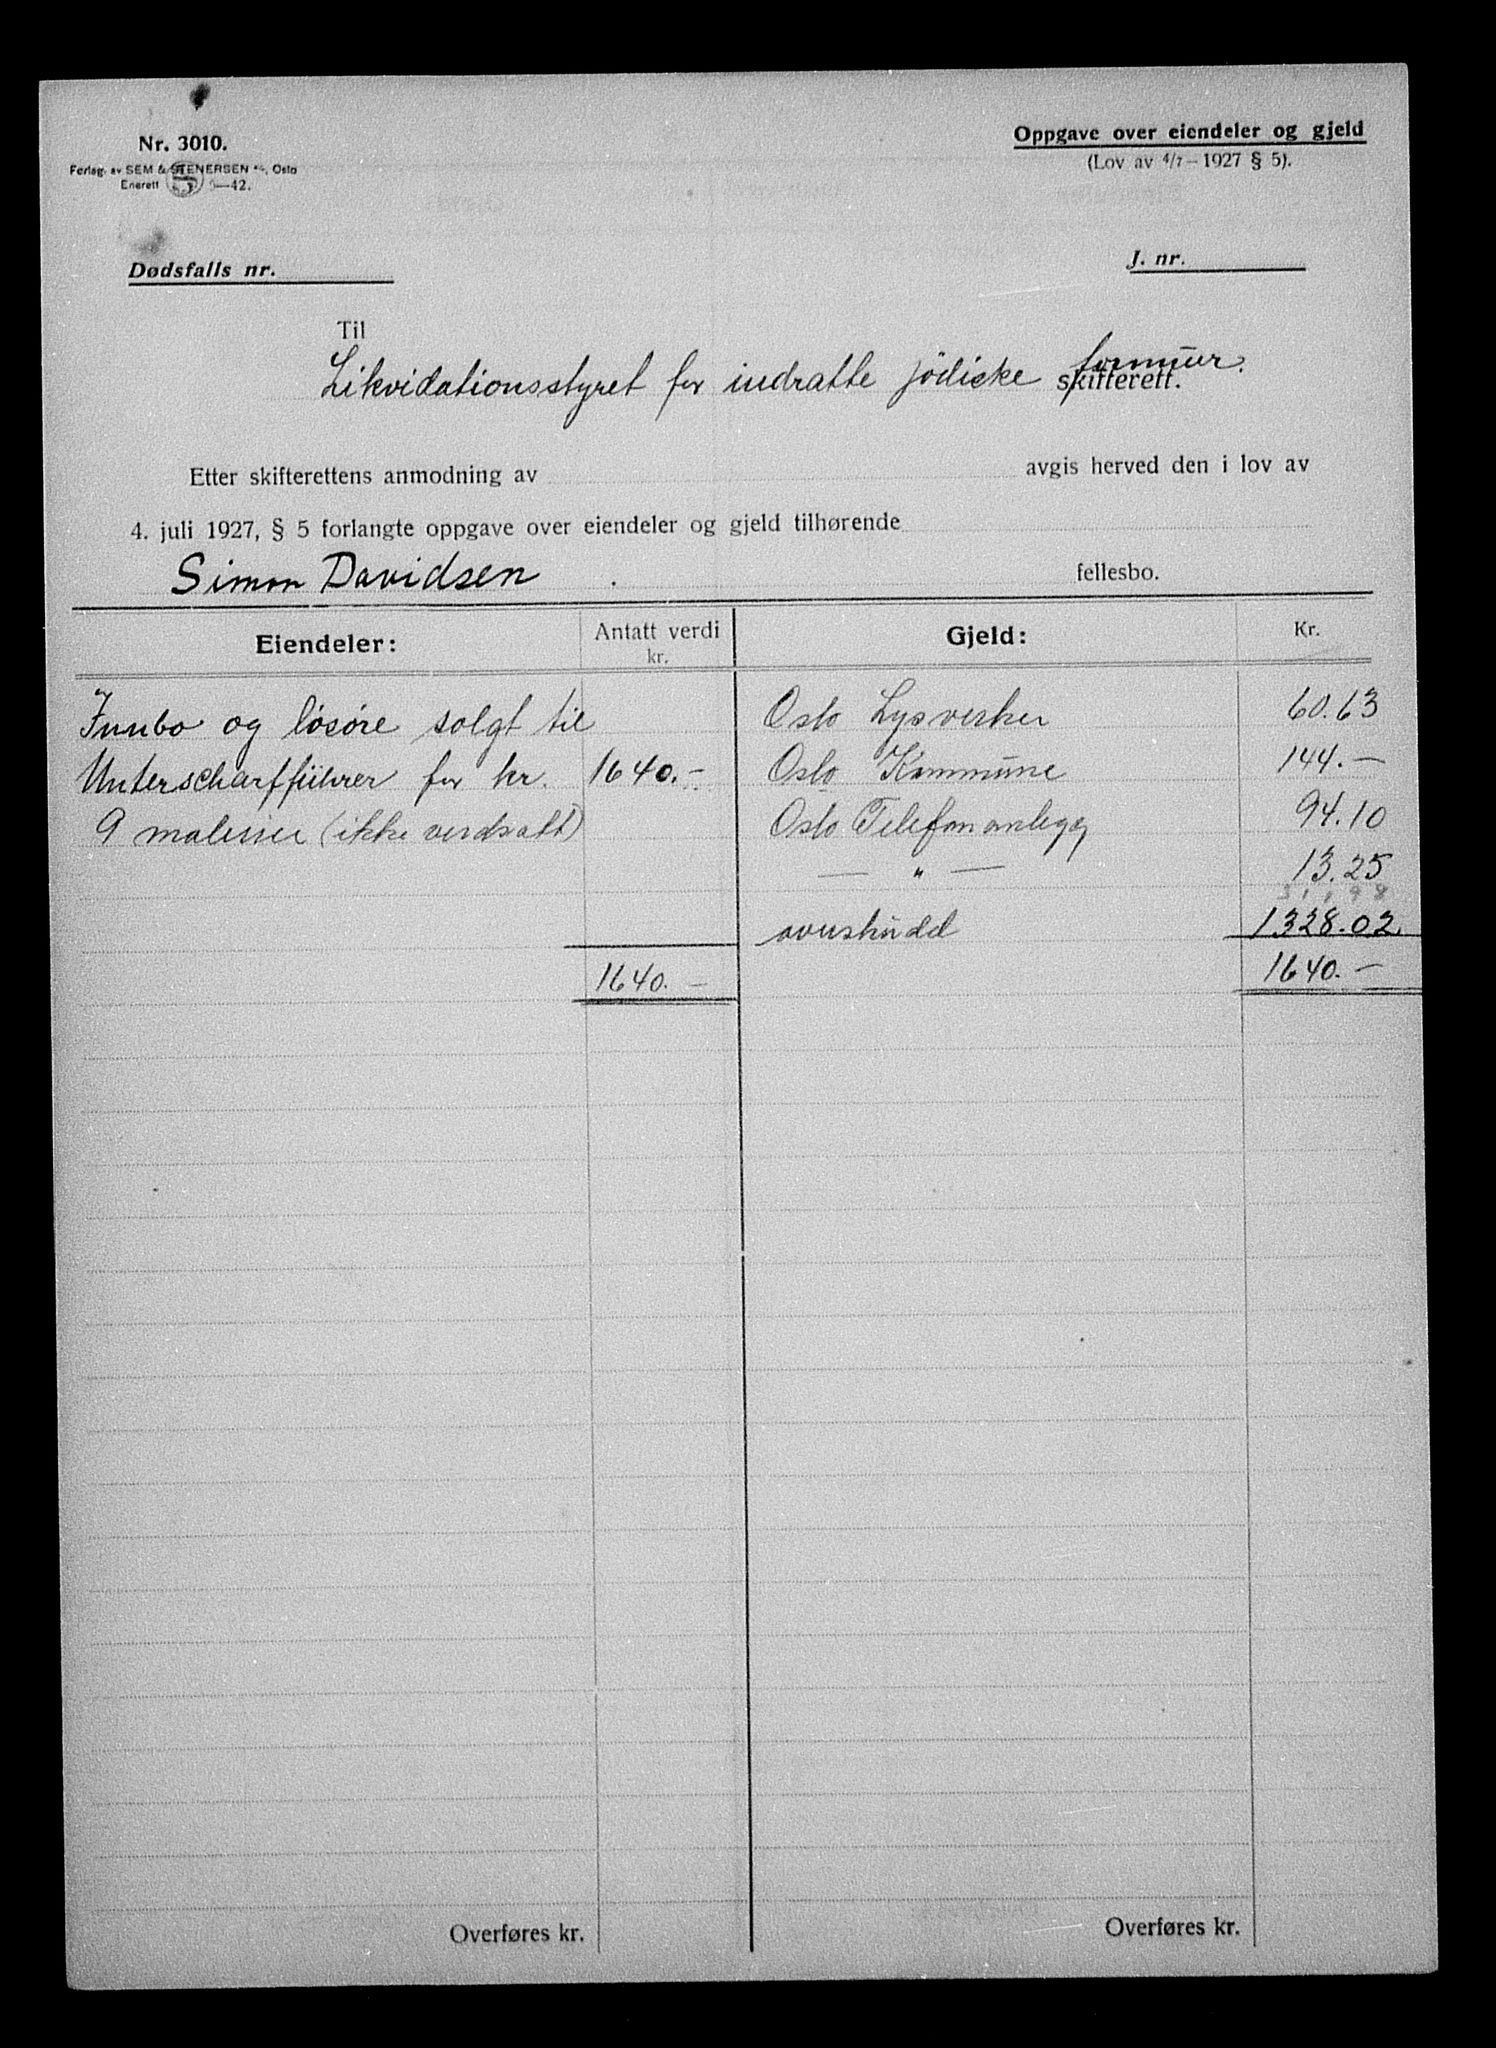 Nr. 3010.
Forlag av SEM & STENERSEN A/S, Oslo
Enerett —42.
Oppgave over eiendeler og gjeld
(Lov av 4/7 – 1927 § 5).
Dødsfalls nr.
J. nr.
Til
Likvidationsstyret for indratte jödiske formuer.
skifterett.
Etter skifterettens anmodning av avgis herved den i lov av
4. juli 1927, § 5 forlangte oppgave over eiendeler og gjeld tilhørende
Simon Davidsen fellesbo.
Eiendeler: Antatt verdi kr. Gjeld: Kr.
Innbo og lösöre solgt til Oslo Lysverker 60.63
Unterscharfführer for kr. 1640.– Oslo Kommune 144.—
9 malerier (ikke verdsatt) Oslo Telefonanlegg 94.10
— " — 13.25
311,98
overskudd 1328.02
1640.— 1640.—
Overføres kr. Overføres kr.